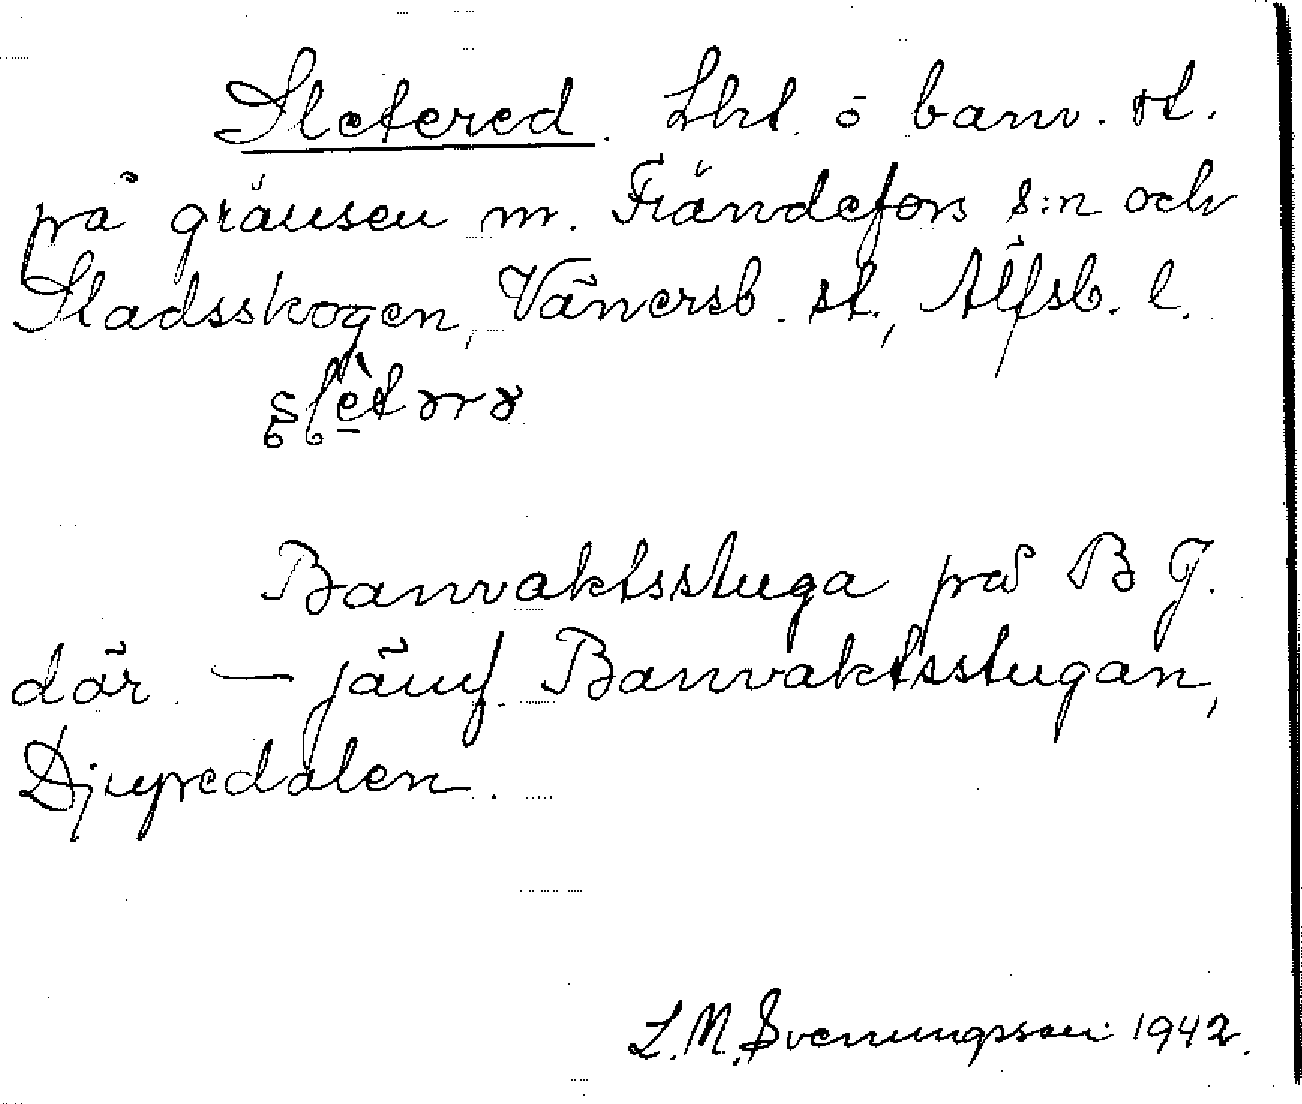 Sletered. Lht. o banv. st.
på gränsen m. Frändefors s:n och
Stadsskogen, Vänersb. st., Älfsb. l.
Banvaktsstuga på B J.
där — jämf. Banvaktsstugan,
Djupedalen.
L. M. Svenungsson 1942.